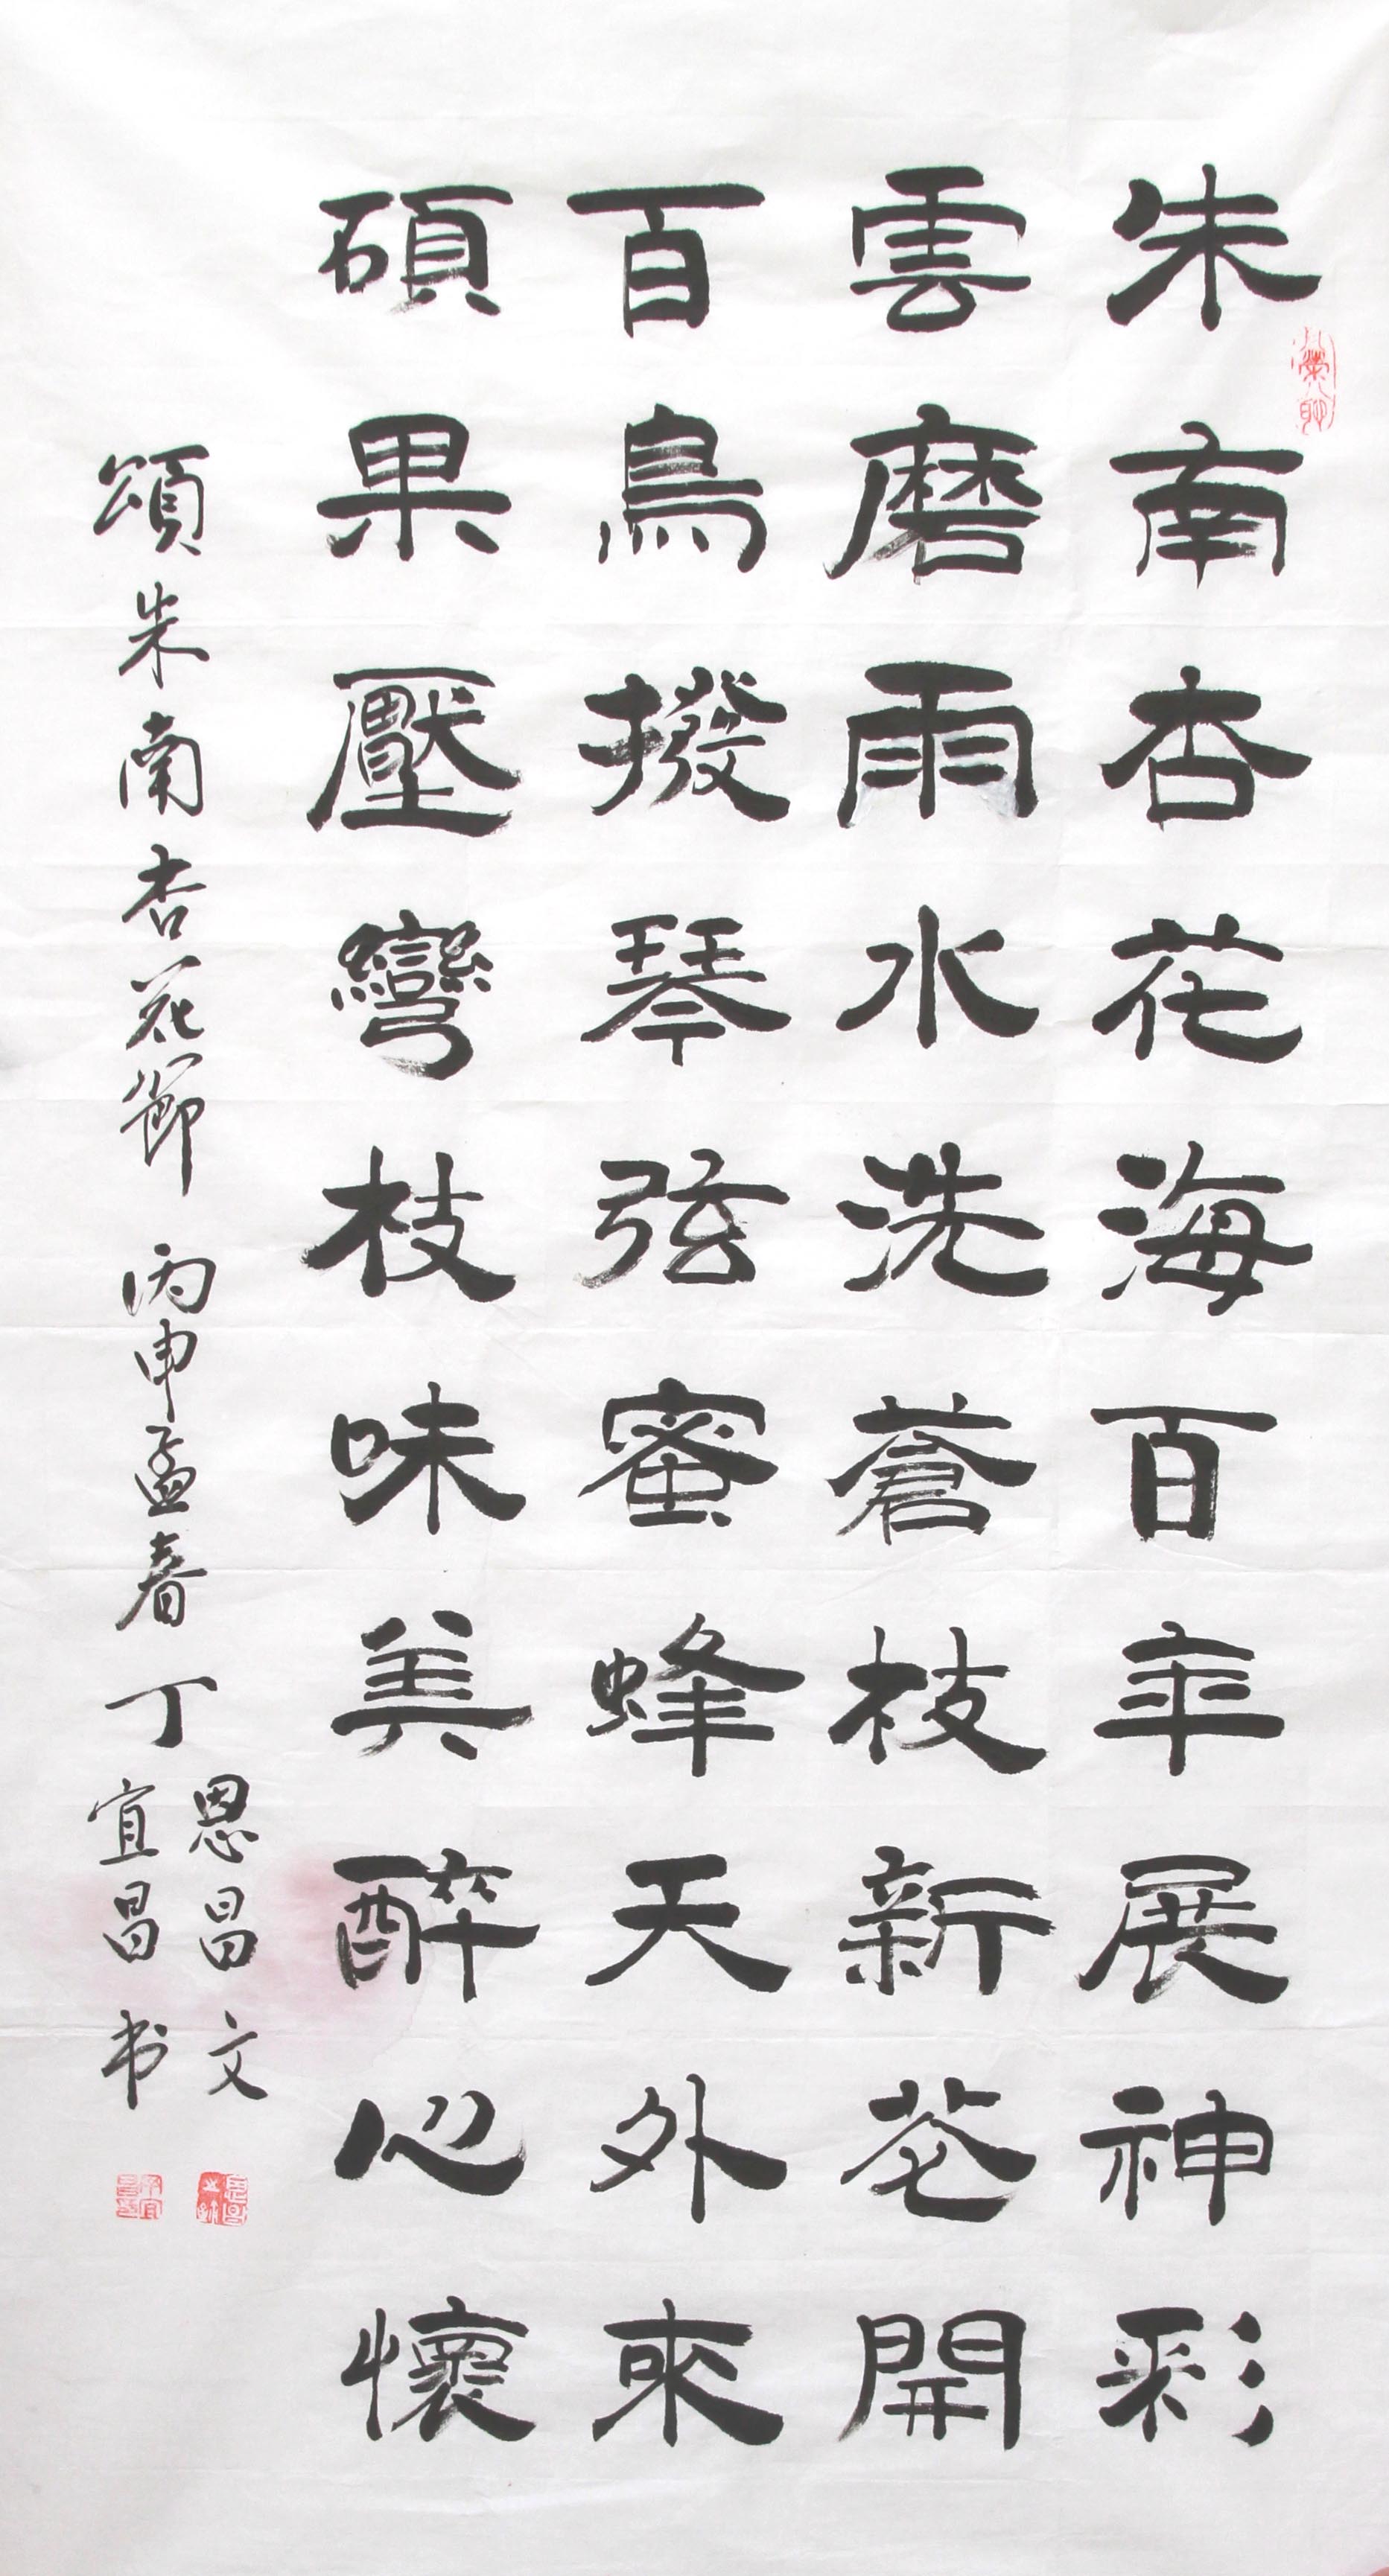 朱南杏花海百年展神彩
雲磨雨水洗蒼枝新花開
百鳥撥琴弦蜜蜂天外來
碩果壓彎枝味美醉心懷
頌朱南杏花節 丙申孟春 丁
恩昌文
宜昌书